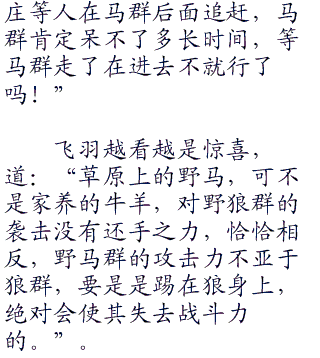 庄等人在马群后面追赶，马
群肯定呆不了多长时间，等
马群走了在进去不就行了
吗！”
飞羽越看越是惊喜，
道：“草原上的野马，可不
是家养的牛羊，对野狼群的
袭击没有还手之力，恰恰相
反，野马群的攻击力不亚于
狼群，要是是踢在狼身上，
绝对会使其失去战斗力
的。”。